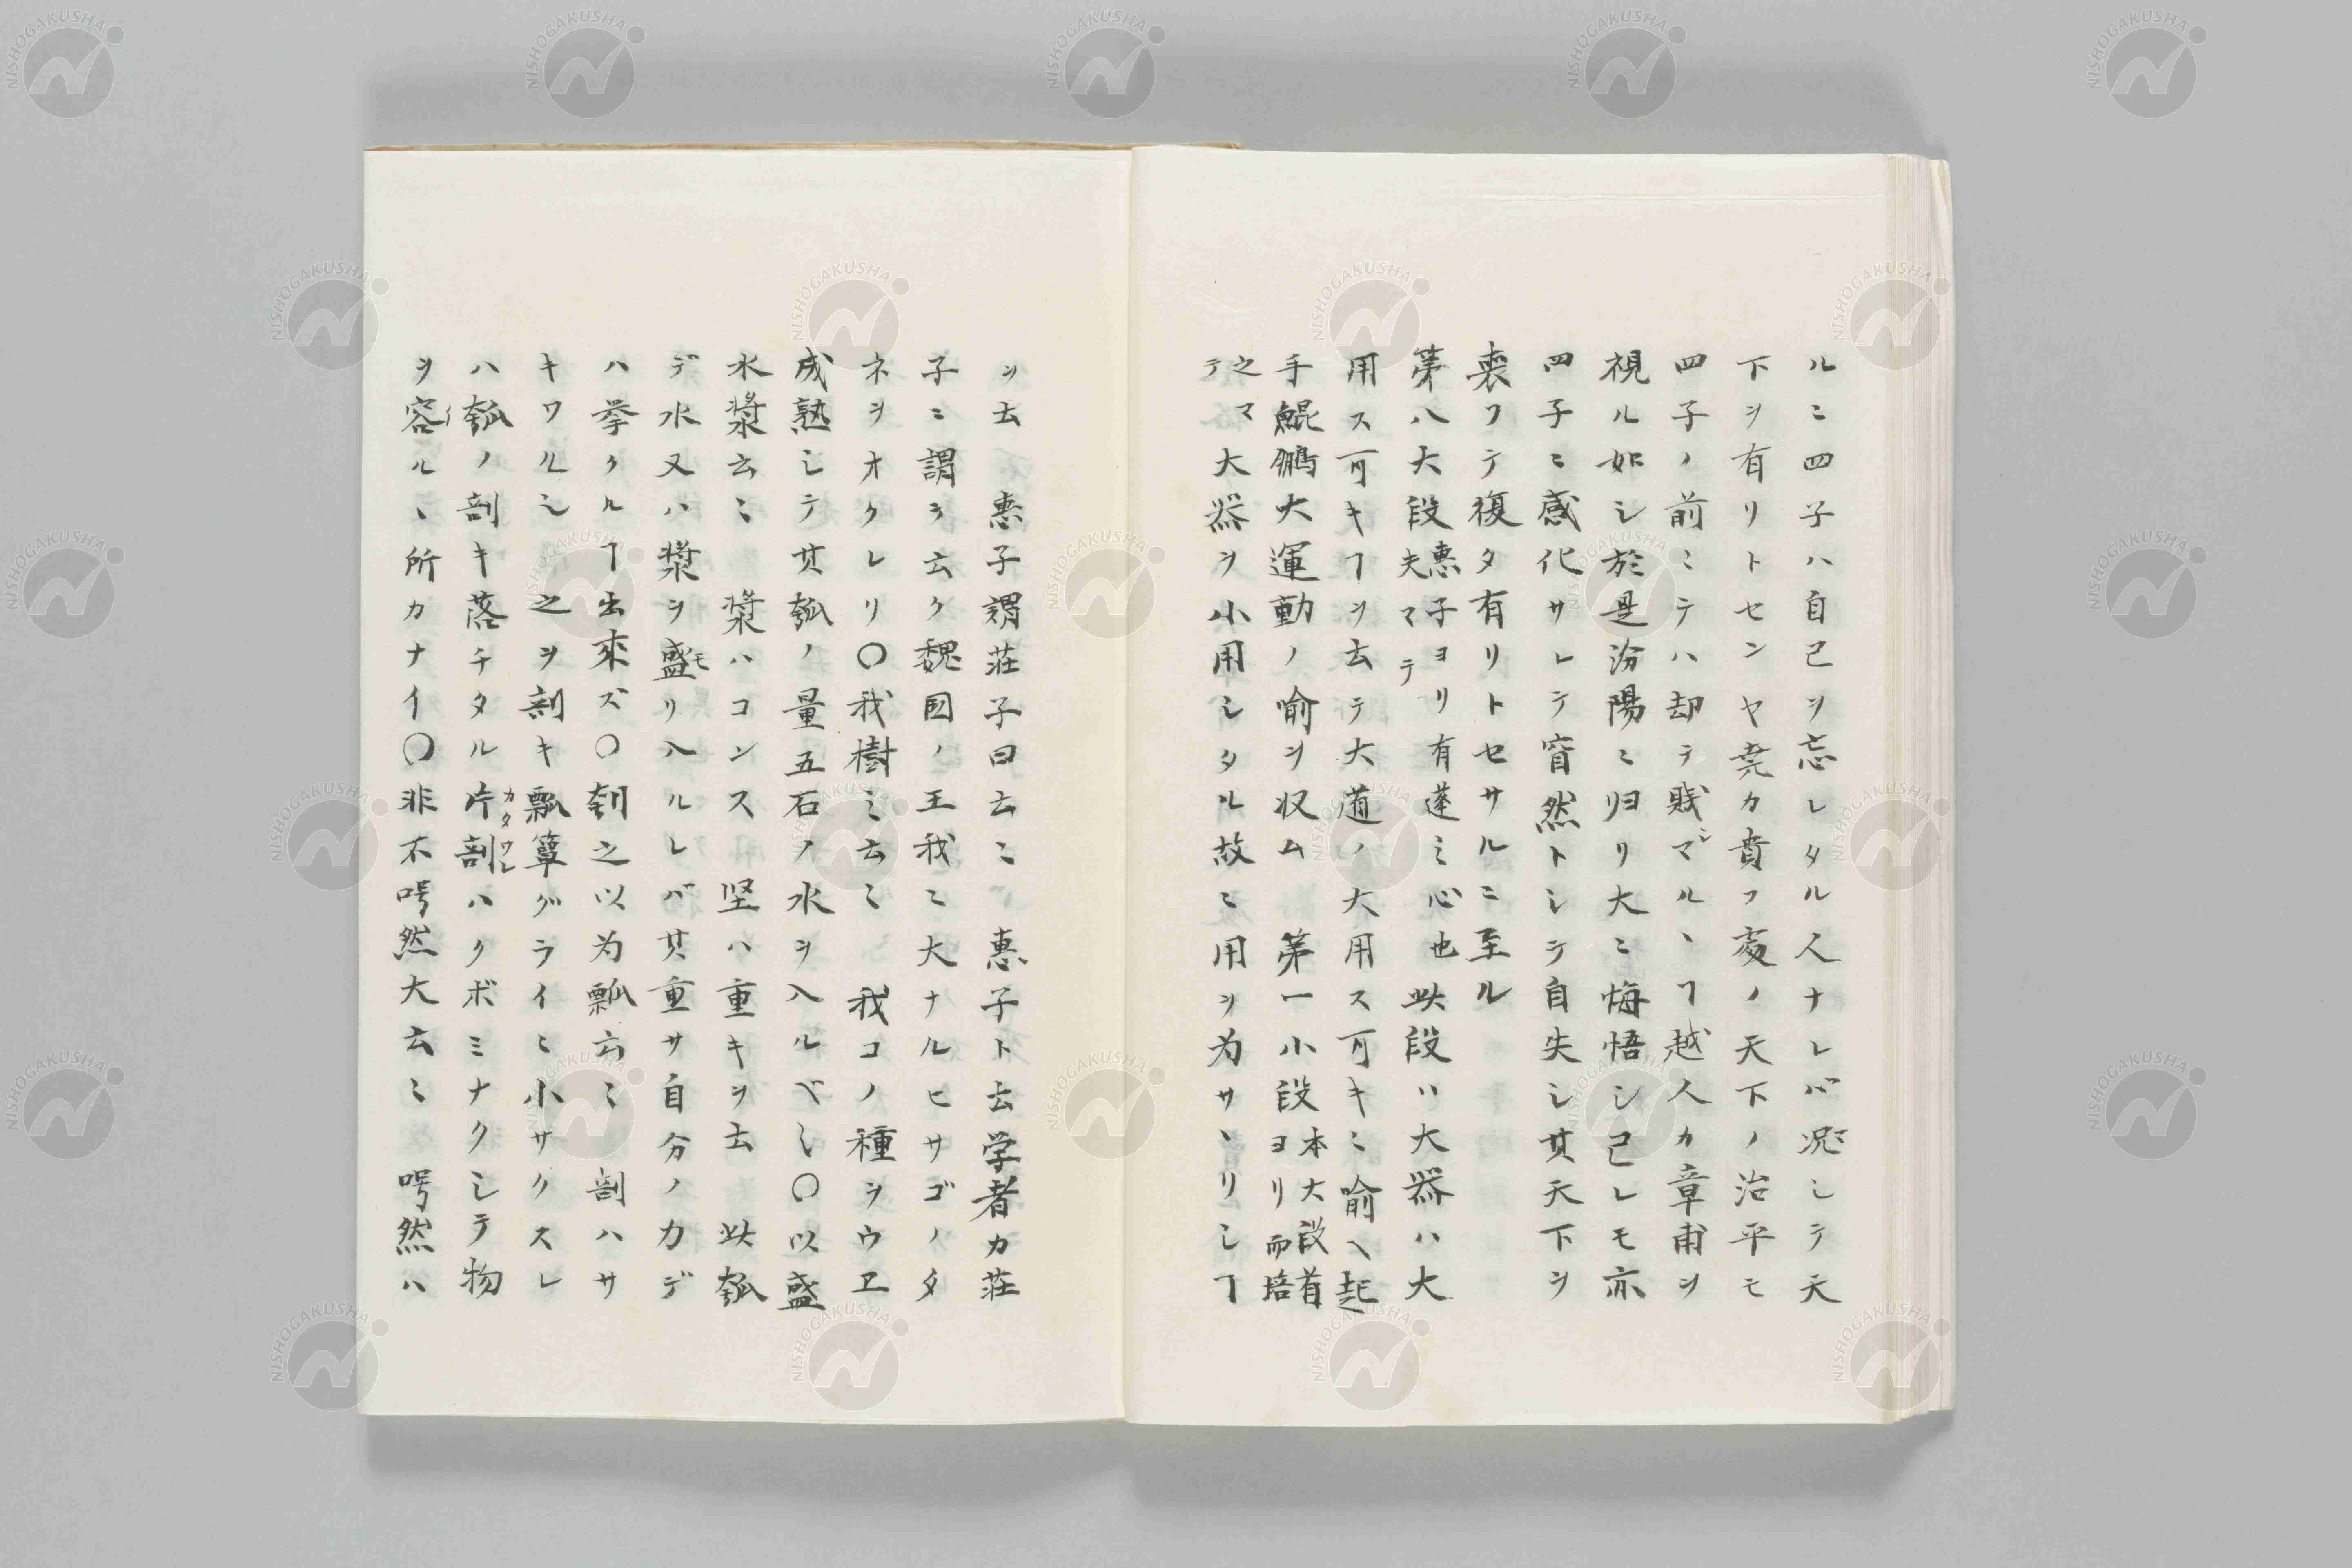 ルニ四子ハ自己ヲ忘レタル人ナレバ况シテ天
下ヲ有リトセンヤ尭カ賁フ䖏ノ天下ノ治平モ
四子ノ前ニテハ却テ賎シマルヽヿ越人カ章甫ヲ
視ル如シ於是汾陽ニ归リ大ニ悔悟シ己レモ亦
四子ニ感化サレテ窅然トシテ自失シ其天下ヲ
喪フテ復タ有リトセサルニ至ル
第八大段惠子ヨリ有蓬ミ心也夫マテ此段ハ大器ハ大
用ス可キヿヲ去テ大道ノ大用ス可キニ喻ヘ起
手鯤鵬大運動ノ喻ヲ収ム 第一小段ヨリ本大段首而掊
之マテ大器ヲ小用シタル故ニ用ヲ为サヽリシヿ
ヲ云 惠子謂荘子曰云ミ 惠子ト云学者カ荘
子ニ謂ヲ云ク魏国ノ王我ニ大ナルヒサゴノタ
ネヲオクレリ〇我樹ミ云ミ 我コノ種ヲウヱ
成熟シテ其瓠ノ量五石ノ水ヲ入ルベシ〇以盛
水漿云ミ 漿ハコンス 坚ハ重キヲ云 此瓠
デ水又ハ漿ヲ盛モリ入ルレバ其重サ自分ノカデ
ハ挙クルヿ出來ズ〇刳之以为瓢云ミ 剖ハサ
キワルシ 之ヲ剖キ瓢簞グライニ小サクスレ
ハ瓠ノ剖キ落チタル片剖カタワレハクボミナクシテ物
ヲ容ルヽ所カナイ〇非不呺然大云ミ 呺然ハ
NISHOGAKUSHA